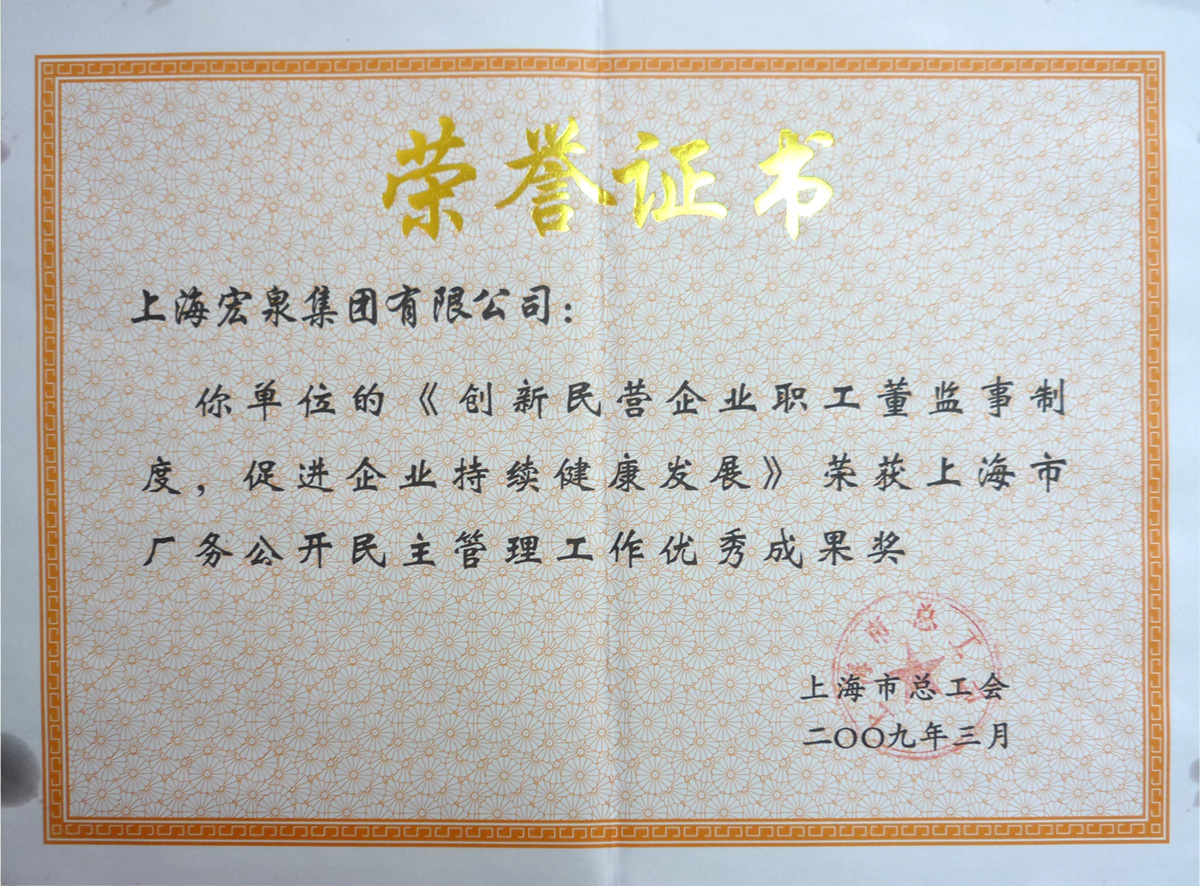 荣誉证书
上海宏泉集团有限公司：
你单位的《创新民营企业职工董监事制
度，促进企业持续健康发展》荣获上海市
厂务公开民主管理工作优秀成果奖
上海市总工会
上海市总工会
二〇〇九年三月